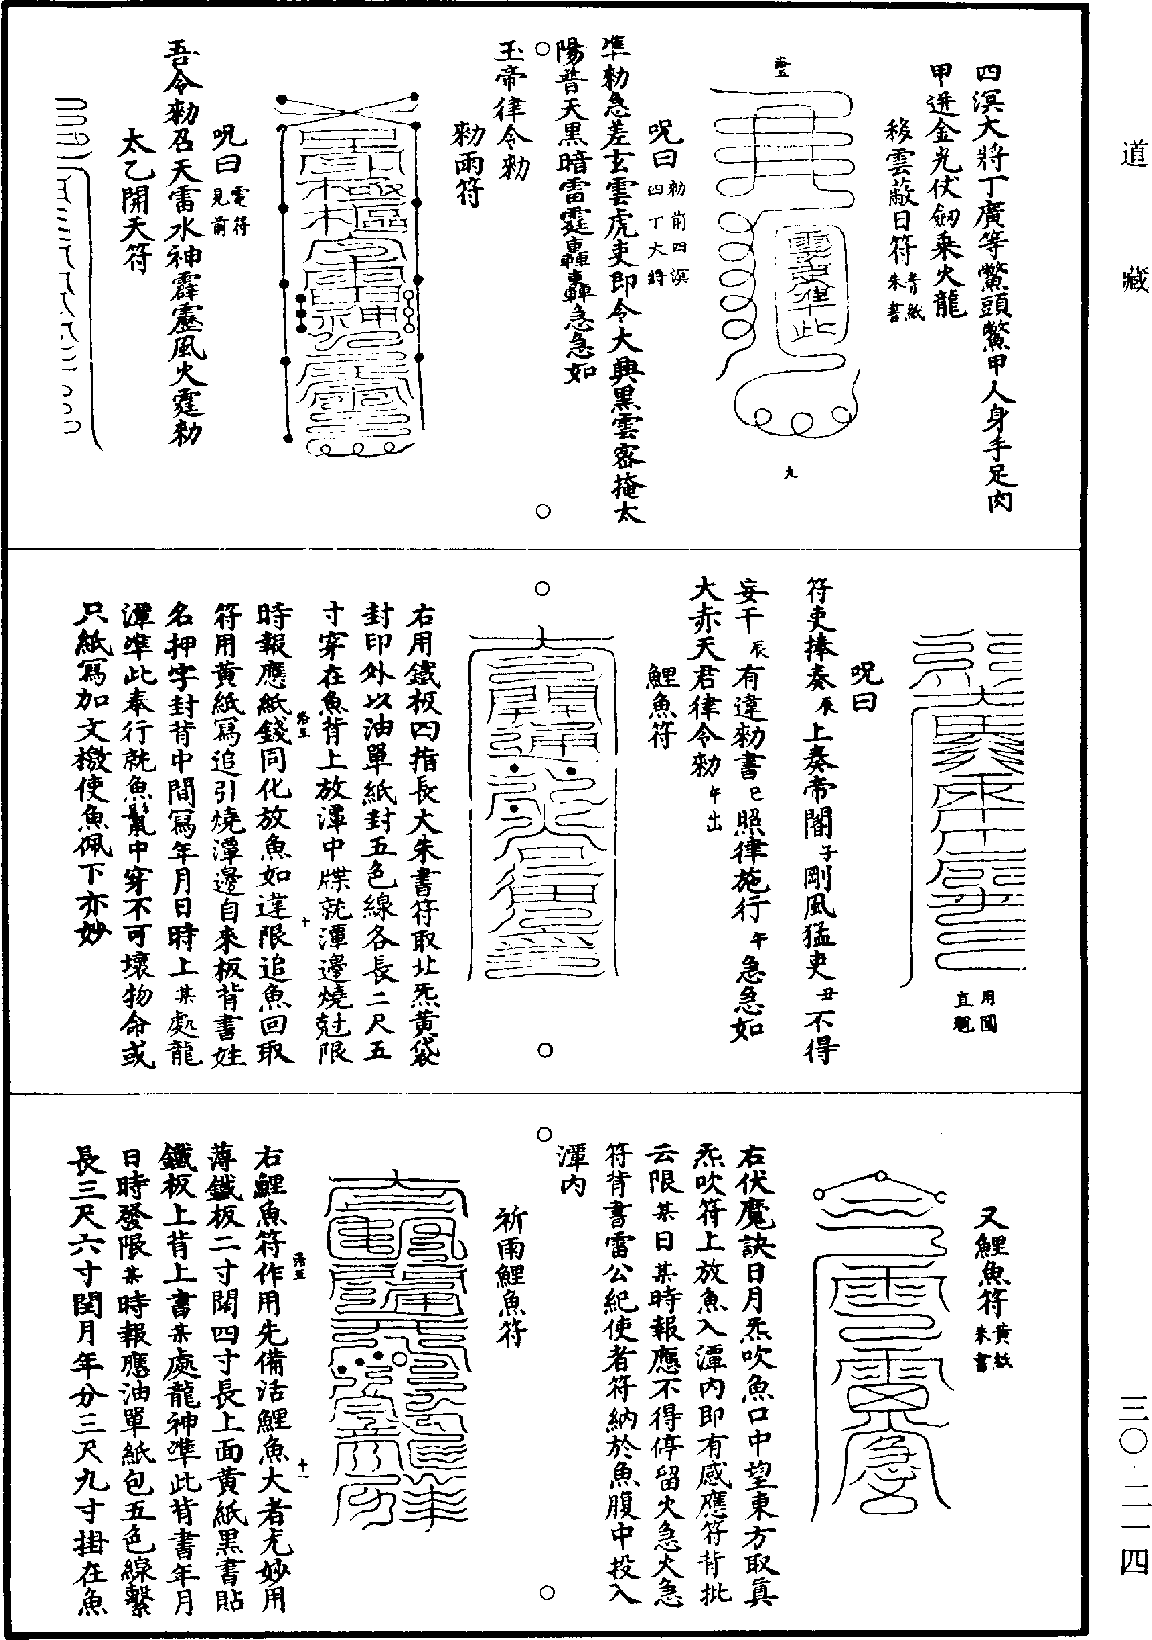 道藏
四溟大將丁廣等鱉頭鱉甲人身手足肉
甲迸金光伏劒乘火龍
移雲蔽日符青紙朱書
九
呪曰勑前四溟四丁大將
準勑急差玄雲虎吏即令大興黑雲密掩太
陽普天黑暗雷霆轟轟急急如
玉帝律令勑
勑雨符
呪曰電符見前
吾令勑召天雷水神霹靂風火霆勑
太乙開天符
用圓直
呪曰
符吏捧奏辰上奏帝閽子剛風猛吏丑不得
妄干辰有違勑書巳照律施行午急急如
大赤天君律令勑午出
鯉魚符
右用鐵板四指長大朱書符取北炁黃袋
封印外以油單紙封五色線各長二尺五
寸穿在魚背上放潭中牒就潭邊燒尅限
時報應紙錢同化放魚如違限追魚回取
十
符用黃紙寫追引燒潭邊自來板背書姓
名押字封背中間寫年月日時上某處龍
潭準此奉行就魚鬣中穿不可壞物命或
只紙寫加文檄使魚佩下亦妙
又鯉魚符黃紙朱書
右伏魔訣日月炁吹魚口中望東方取眞
炁吹符上放魚入潭內即有感應符背批
云限某日某時報應不得停留火急火急
符背書雷公紀使者符納於魚腹中投入
潭內
祈雨鯉魚符
右鯉魚符作用先備活鯉魚大者尤妙用
十一
薄鐵板二寸闊四寸長上面黃紙黑書貼
鐵板上背上書某處龍神準此背書年月
日時發限某時報應油單紙包五色線繫
長三尺六寸閏月年分三尺九寸掛在魚
三〇·二一四